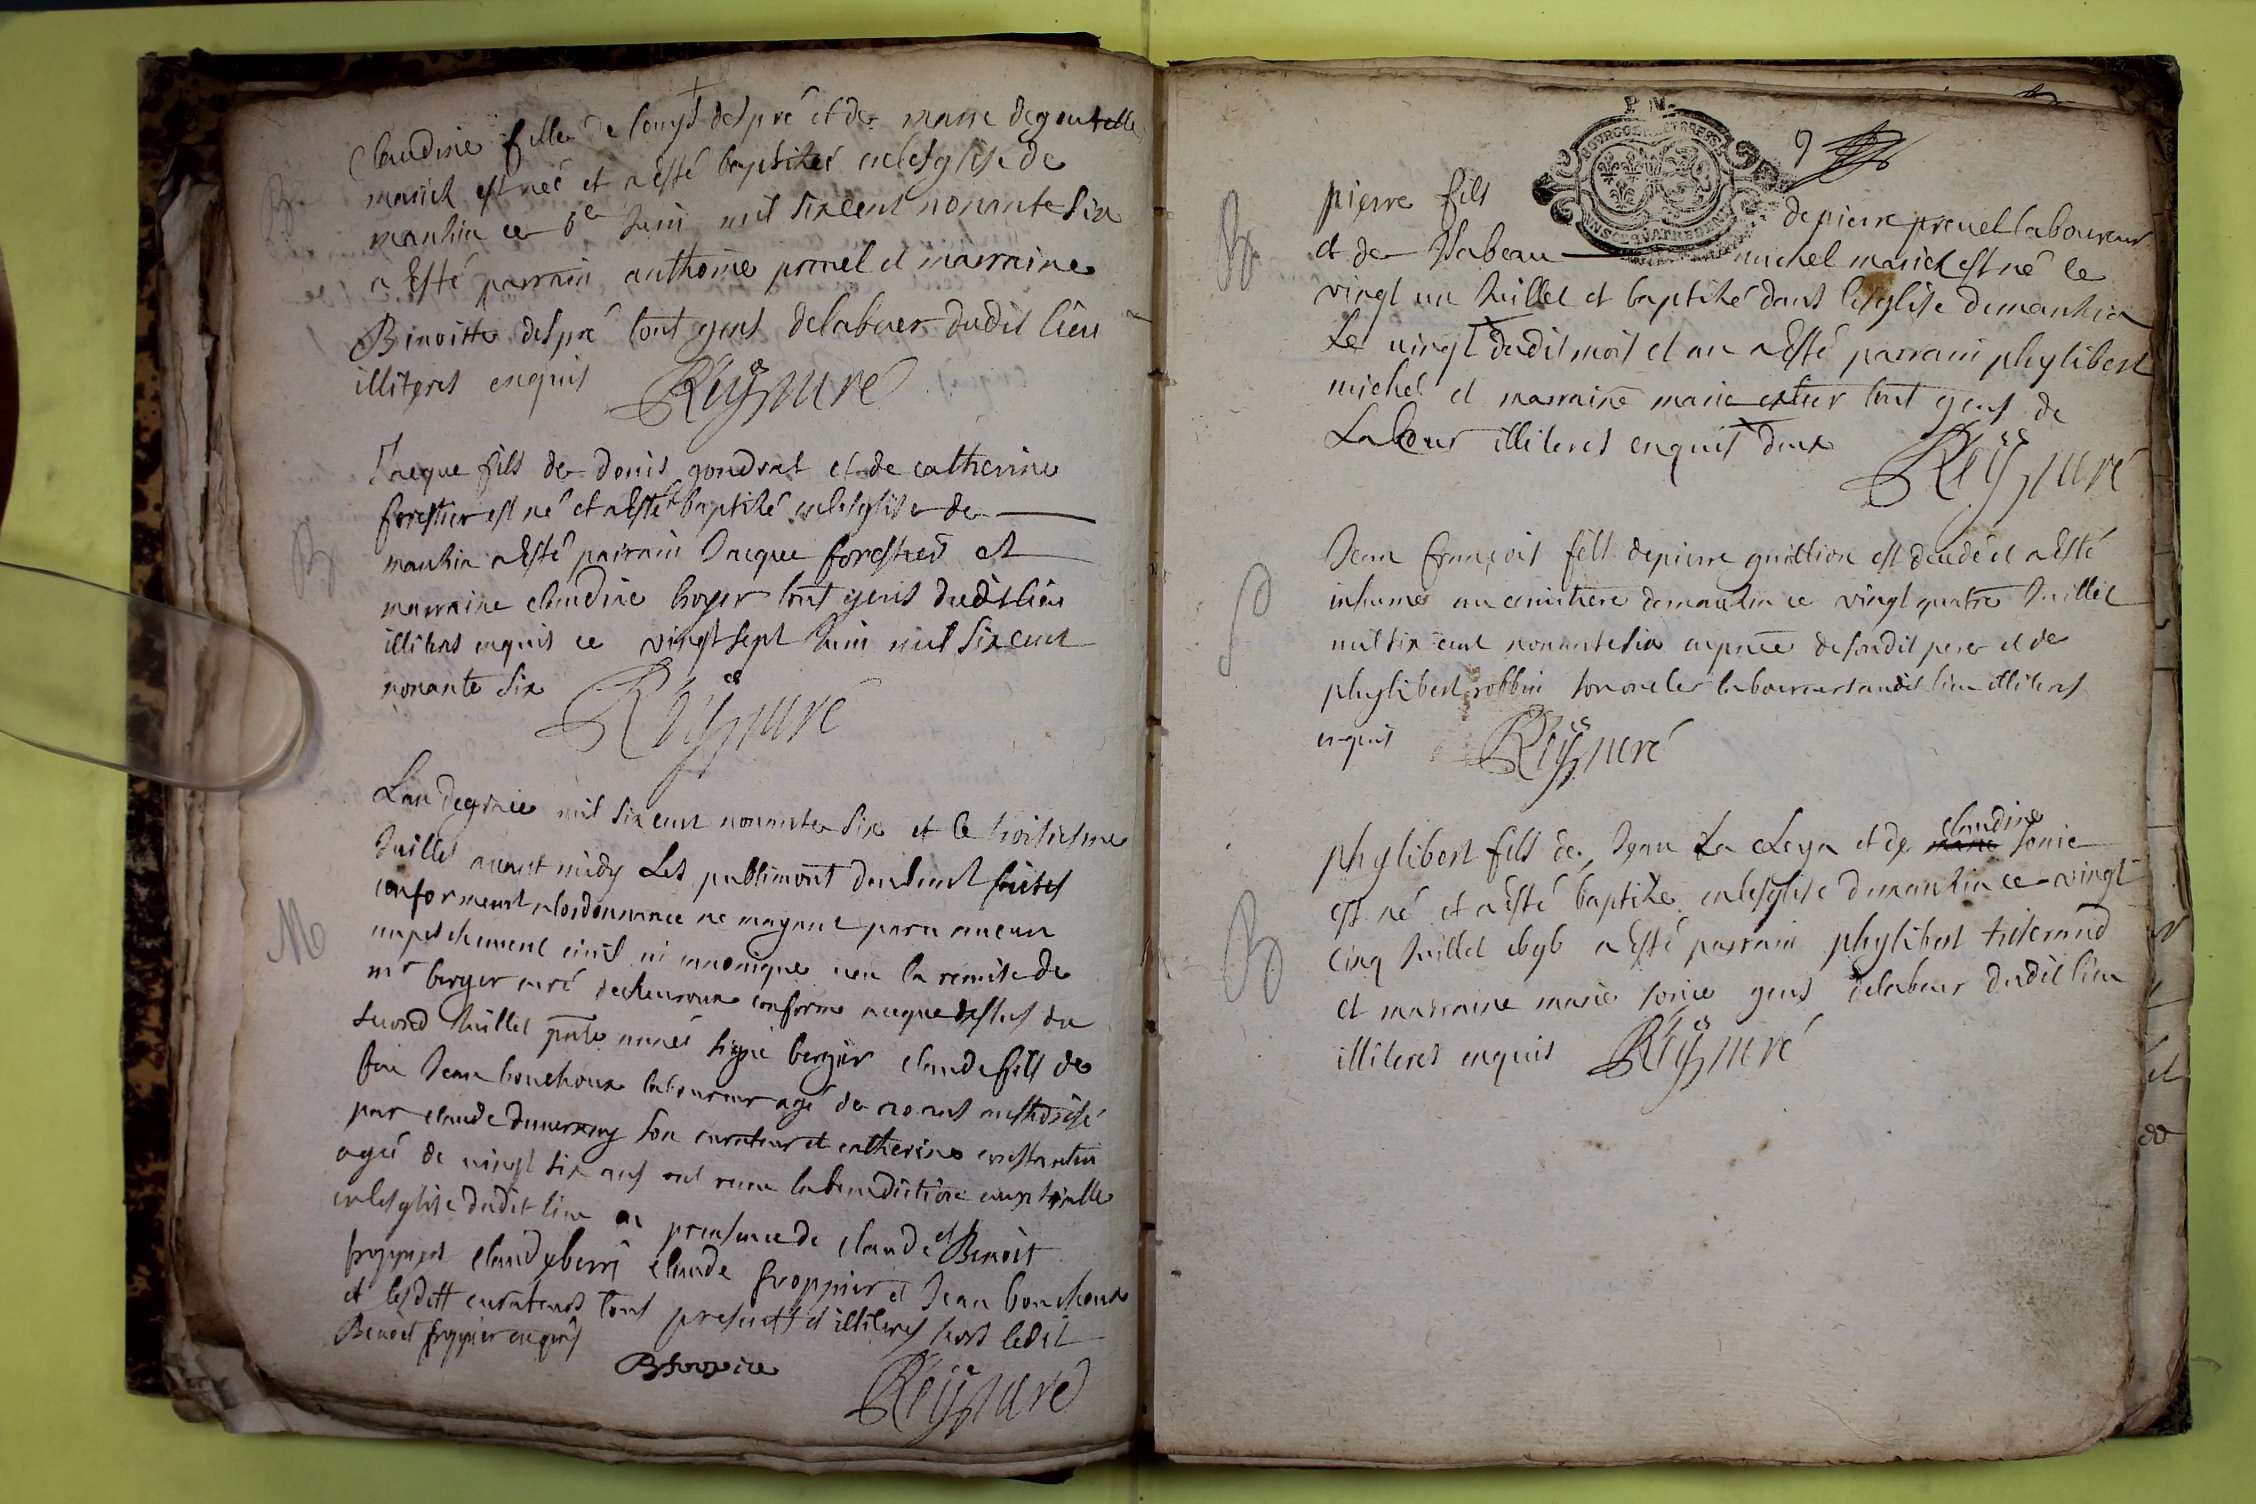 Claudine fille de Louys despré et de marie degoutelle
mariek est neé et a esté baptiseé en lesglise de
manhia ce 6e Juin mil six cent nonante six
a Esté parrain anthoine prenel et marraine
Benoitte despré tout gens delabuer dudit lieu
illiteres enquis Reÿ curé
B
Jacque fils de donis gondrat et de catherine
forestier est né et a Esté baptisé en lesglise de
manhia a Esté parrain Jacque forestier et
marraine claudine boyer tout gens dudit lieu
illiteres enquis ce vingt sept Juin mil six cent
nonante six Reÿ curé
B
Lan degrace mil six cent nonante six et le troisiesme
Juillet avant midy Les publimont deulment faites
conformement a lordonnance ne mayant paru aucun
empeschement civil ni canonique veu la remise de
mr berger curé de chevroux conforme a ce que dessus du
second Juillet pnte anneé signé berger claude fils de
feu Jean bouchoux laboureur agé de 20 ans authorisé
par claude duvernay son curateur et catherine constantin
agée de vingt six ans ont receu la benediction nuptialle
en lesglise dudit lieu en presence de claude et Benoit
froppier claude berri claude froppier et Jean bouchoux
et lesditt curateurs tout presents et illiteres hors ledit
Benoit froppier enquis
M
Reÿ curé
9
pierre fils de pierre prenel laboureur
et de Isabeau michel mariek est né le
vingt un Juillet et baptisé dans lesglise demanhia
Le vingt dudit mois et an a Esté parrain phylibert
michel et marraine marie tout gens de
Labeur illiteres enquis deux Reÿ curé
B
Jean françois fils depierre guillion est decedé et a Esté
inhumé au cemitiere demanhia ce vingt quatre Juillet
mil six cent nonante six en pnce de sondit pere et de
phylibert robbin son oncle laboureurs audit lieu illiteres
enquis Reÿ curé
phylibert fils de Jean La cleya et de claudine Jonie
est né et a Esté baptizé en lesglise demanhia ce vingt
cinq Juillet a Esté parrain phylibert tisserand
et marraine marie Jonie gens delabeur dudit lieu
illiteres enquis Reÿ curé
B